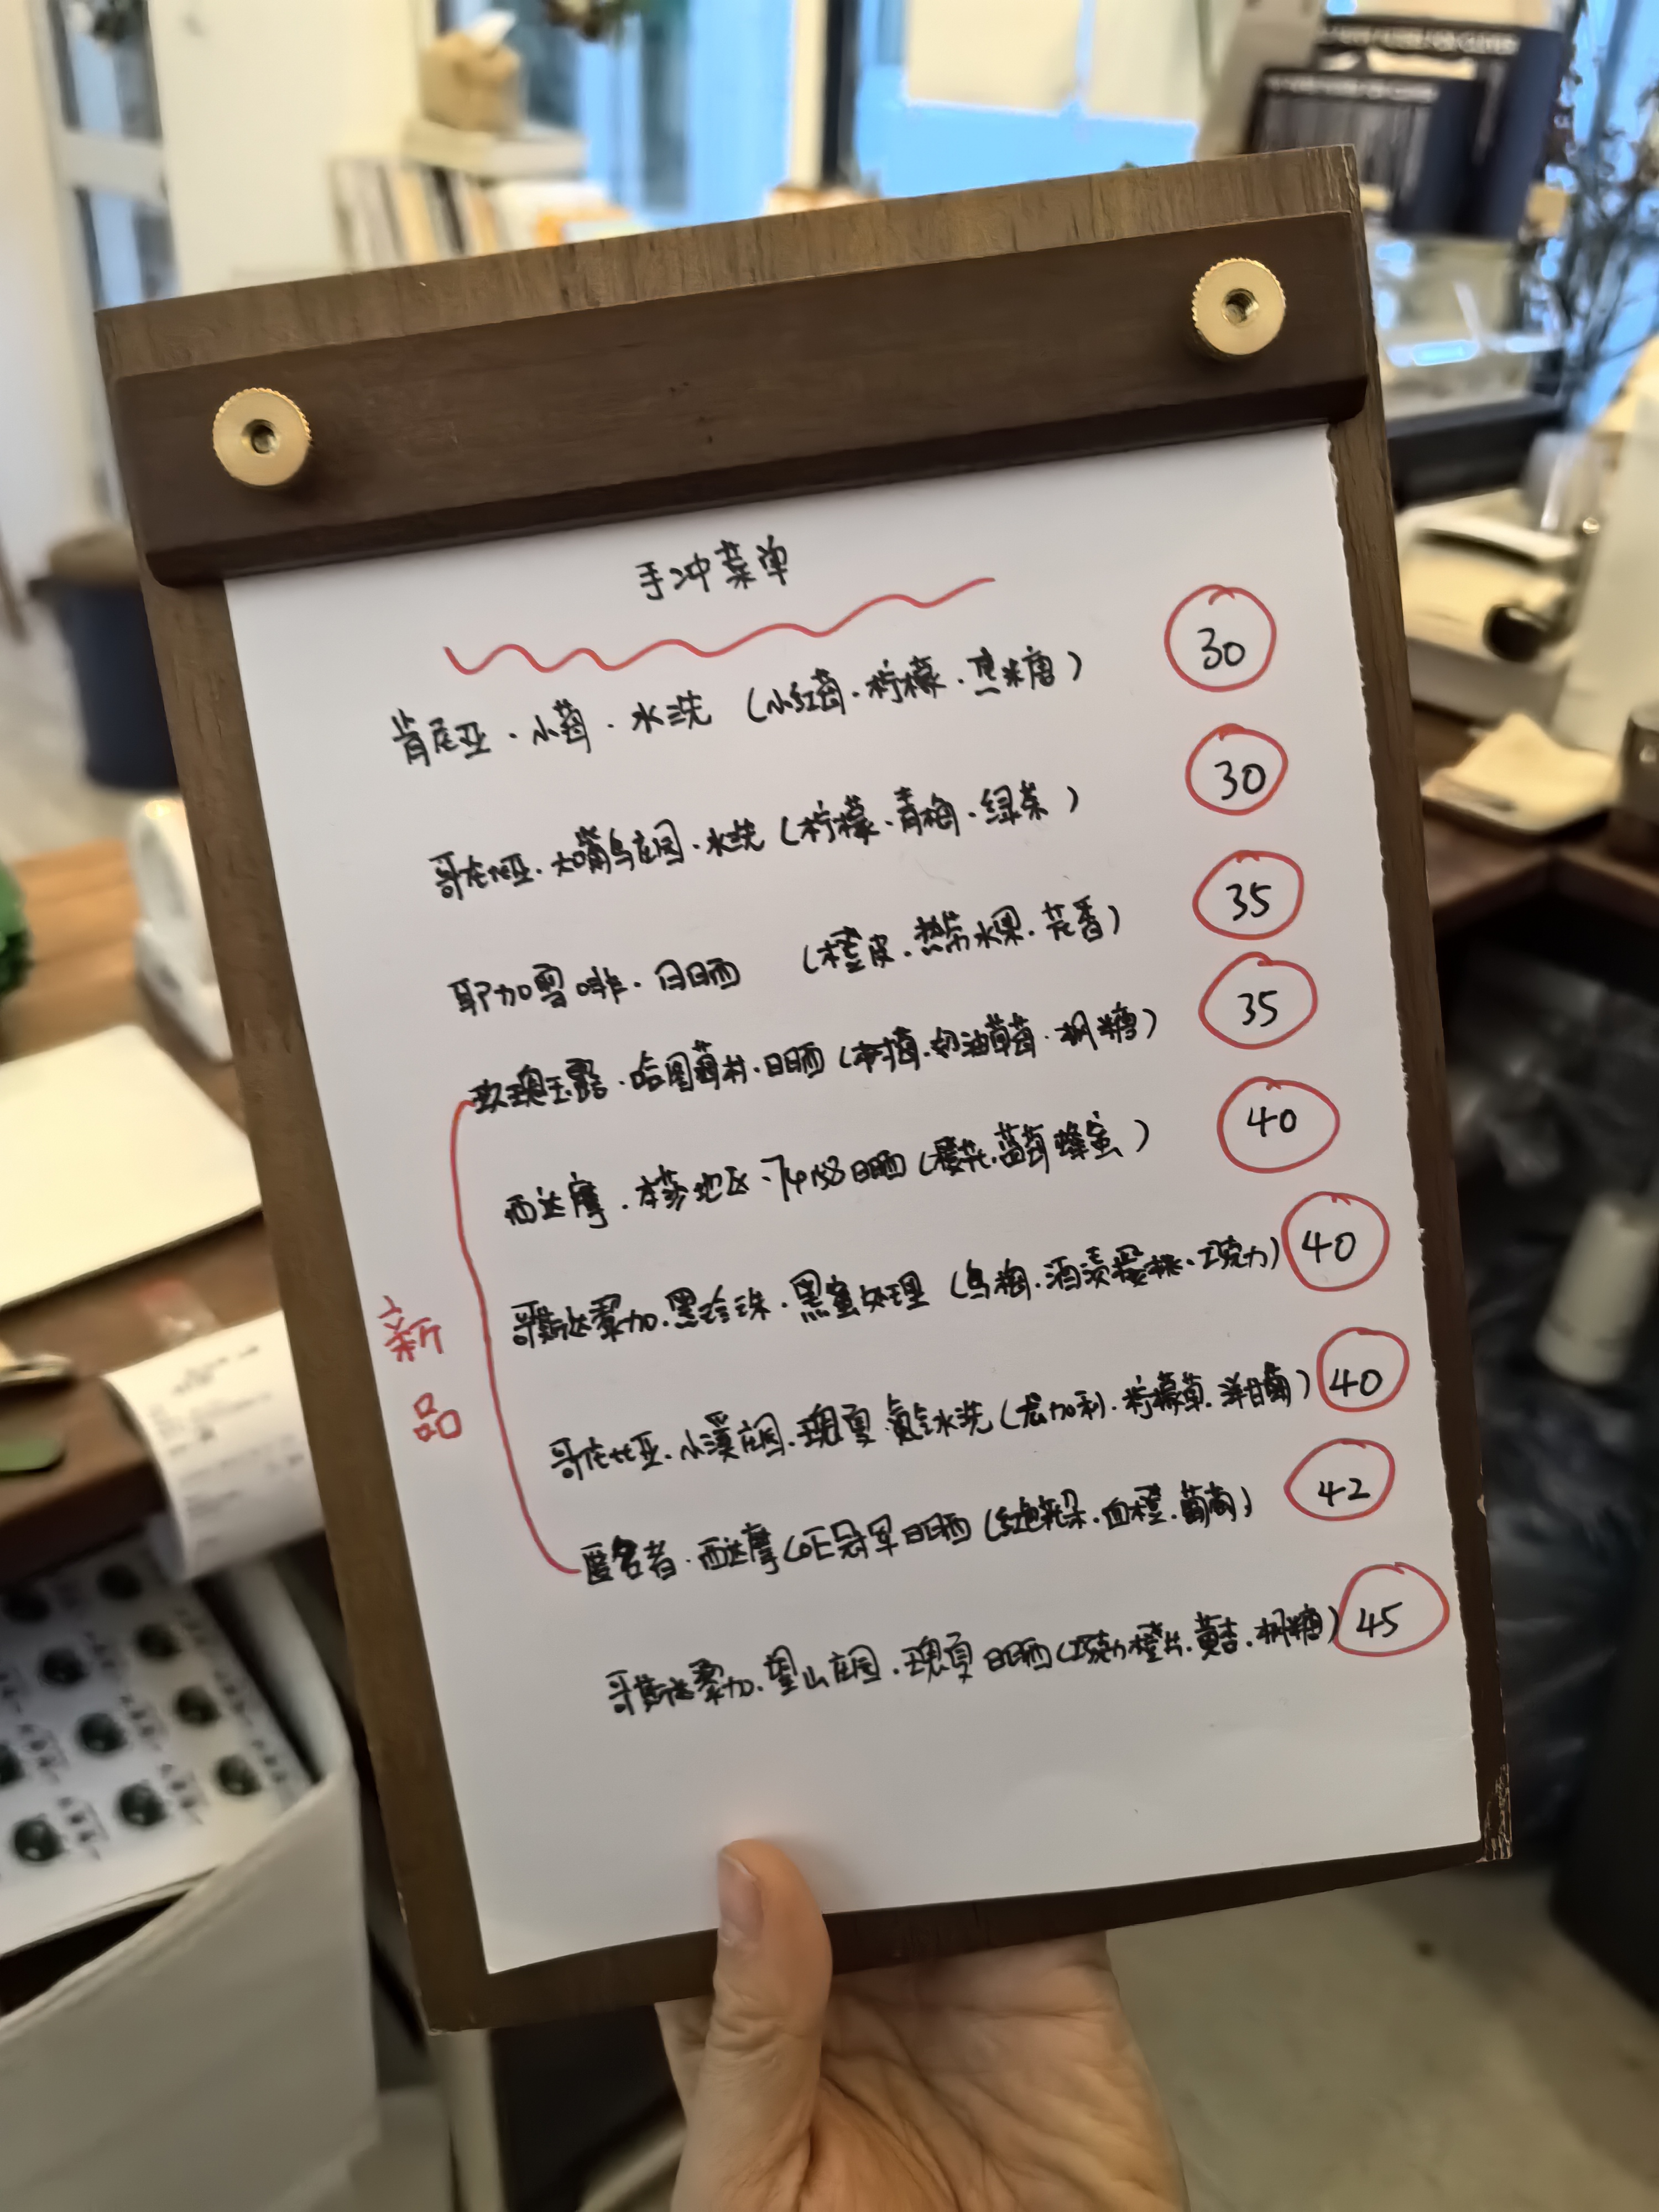 手冲菜单
肯尼亚·小莓·水洗（小红莓·柠檬·黑糖） 30
哥伦比亚·大嘴鸟庄园·水洗（柠檬·青梅·绿茶） 30
耶加雪啡·日晒（橙皮·热带水果·花香） 35
玫瑰玉露·哈图莓村·日晒（草莓·奶油草莓·枫糖） 35
西达摩·本莎地区·74158日晒（樱花·蓝莓蜂蜜） 40
哥斯达黎加·黑珍珠·黑蜜处理（乌梅·酒渍樱桃·巧克力） 40
哥伦比亚·小溪庄园·瑰夏·氮气水洗（尤加利·柠檬草·洋甘菊） 40
匿名者·西达摩COE冠军日晒（红色花朵·血橙·葡萄） 42
哥斯达黎加·圣山庄园·瑰夏日晒（巧克力橙片·黄杏·枫糖） 45
新品